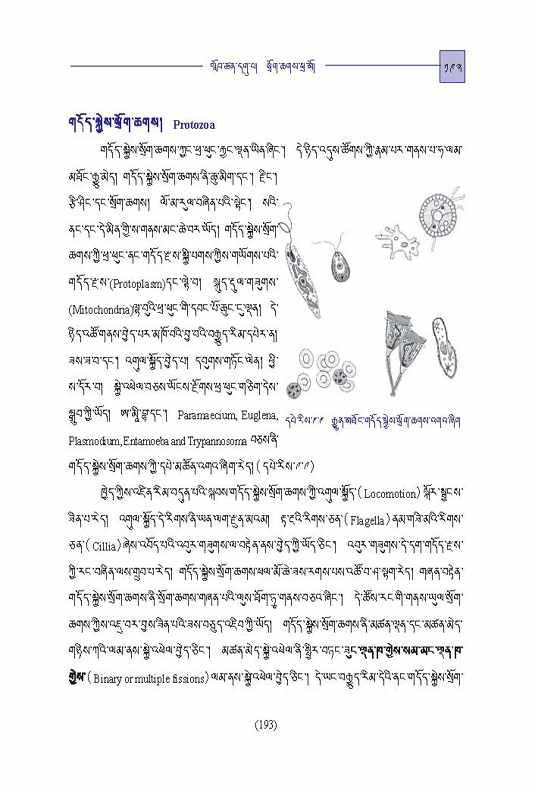 སློབ་ཚན་དགུ་པ། སྲོག་ཆགས་ཕྲ་མོ།
༡༩༣
གདོད་སྐྱེས་སྲོག་ཆགས། Protozoa
གདོད་སྐྱེས་སྲོག་ཆགས་ཀྱང་ཕྲ་ཕུང་རྐྱང་ལྡན་ཡིན་ཞིང་། དེ་ཉིད་འདུས་ཚོགས་ཀྱི་རྣམ་པར་གནས་པ་ཧ་ལམ་
མཐོང་རྒྱུ་མེད། གདོད་སྐྱེས་སྲོག་ཆགས་ནི་ཆུ་མིག་དང་། རྫིང་།
རྩི་ཤིང་དང་སྲོག་ཆགས། ལོ་མ་རུལ་བཞིན་པའི་སྟེང་། སའི་
ནང་དང་དེ་མིན་གྱི་ས་གནས་མང་ཆེ་བར་ཡོད། གདོད་སྐྱེས་སྲོག་
ཆགས་ཀྱི་ཕྲ་ཕུང་ནང་གདོད་རྫས་སྐྱི་པགས་ཀྱིས་གཡོགས་པའི་
གདོད་རྫས་(Protoplasm)དང་ལྟེ་བ། སྐུད་རྡུལ་གཟུགས་
(Mitochondria)ལྟ་བུའི་ཕྲ་ཕུང་གི་དབང་པོ་ཆུང་ངུ་ལྡན། དེ་
ཉིད་འཚོ་གནས་བྱེད་པར་མཁོ་བའི་བྱ་བའི་བརྒྱུད་རིམ་དཔེར་ན།
ཟས་ཟ་བ་དང་། འགུལ་སྐྱོད་བྱེད་པ། དབུགས་གཏོང་ལེན། ཕྱི་
ས་དོར་བ། སྐྱེ་འཕེལ་བཅས་ཡོངས་རྫོགས་ཕྲ་ཕུང་གཅིག་དེས་
སྒྲུབ་ཀྱི་ཡོད། ཨ་མཱི་བྷ་དང་། Paramaecium, Euglena,
Plasmodium, Entamoeba and Trypannosoma བཅས་ནི་
གདོད་སྐྱེས་སྲོག་ཆགས་ཀྱི་དཔེ་མཚོན་འགའ་ཞིག་རེད། (དཔེ་རིས་༩༩)
དཔེ་རིས་༩༩ རྒྱུན་མཐོང་གདོད་སྐྱེས་སྲོག་ཆགས་འགའ་ཞིག
ཁྱེད་ཀྱིས་འཛིན་རིམ་བདུན་པའི་སྐབས་གདོད་སྐྱེས་སྲོག་ཆགས་ཀྱི་འགུལ་སྐྱོད་(Locomotion) སྐོར་སྦྱངས་
ཟིན་པ་རེད། འགུལ་སྐྱོད་དེ་རིགས་ནི་ཡན་ལག་རྫུན་མའམ། རྟ་རྔའི་རིགས་ཅན་(Flagella) ནམ་གཟི་མའི་རིགས་
ཅན་(Cillia) ཞེས་འབོད་པའི་འབུར་གཟུགས་ལ་བརྟེན་ནས་བྱེད་ཀྱི་ཡོད་ཅིང་། འབུར་གཟུགས་དེ་དག་གདོད་རྫས་
ཀྱི་རང་བཞིན་ལས་གྲུབ་པ་རེད། གདོད་སྐྱེས་སྲོག་ཆགས་ཕལ་མོ་ཆེ་ཟས་རིགས་པས་འཚོ་བ་ཤ་སྟག་རེད། གཞན་བརྟེན་
གདོད་སྐྱེས་སྲོག་ཆགས་ནི་སྲོག་ཆགས་གཞན་པའི་ལུས་ཐོག་ཏུ་གནས་བཅའ་ཞིང་། དེ་ཚོས་རང་གི་གནས་ཡུལ་སྲོག་
ཆགས་ཀྱིས་འཇུ་བར་བྱས་ཟིན་པའི་ཟས་བཅུད་འཇིབ་ཀྱི་ཡོད། གདོད་སྐྱེས་སྲོག་ཆགས་ནི་མཚན་ལྡན་དང་མཚན་མེད་
གཉིས་ཀའི་ལམ་ནས་སྐྱེ་འཕེལ་བྱེད་ཅིང་། མཚན་མེད་སྐྱེ་འཕེལ་ནི་སྤྱིར་བཏང་ཟུང་ལྡན་ཁ་གྱེས་སམ་མང་ལྡན་ཁ་
གྱེས་(Binary or multiple fissions) ལམ་ནས་སྐྱེ་འཕེལ་བྱེད་ཅིང་། དེ་ཡང་བརྒྱུད་རིམ་དེའི་ནང་གདོད་སྐྱེས་སྲོག་
(193)